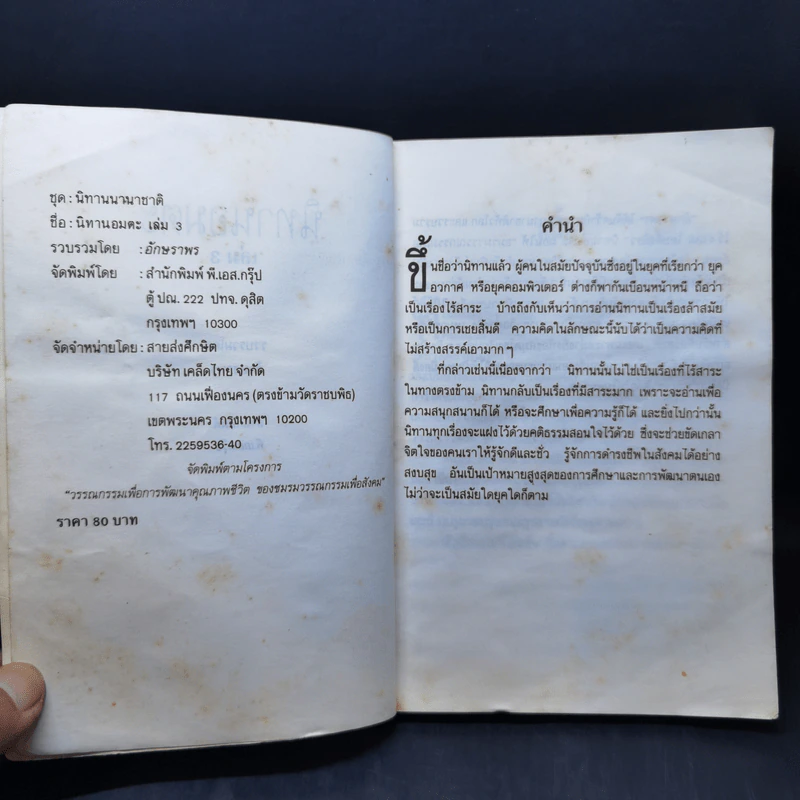 ชุด : นิทานนานาชาติ
ชื่อ : นิทานอมตะ เล่ม 3
รวบรวมโดย : อักษราพร
จัดพิมพ์โดย : สำนักพิมพ์ พี.เอส.กรุ๊ป
ตู้ ปณ. 222 ปทจ. ดุสิต
กรุงเทพฯ 10300
จัดจำหน่ายโดย : สายส่งศึกษิต
บริษัท เคล็ดไทย จำกัด
117 ถนนเฟื่องนคร (ตรงข้ามวัดราชบพิธ)
เขตพระนคร กรุงเทพฯ 10200
โทร. 2259536-40
จัดพิมพ์ตามโครงการ
"วรรณกรรมเพื่อการพัฒนาคุณภาพชีวิต ของชมรมวรรณกรรมเพื่อสังคม"
ราคา 80 บาท
คำนำ
ขึ้นชื่อว่านิทานแล้ว ผู้คนในสมัยปัจจุบันซึ่งอยู่ในยุคที่เรียกว่า ยุค
อวกาศ หรือยุคคอมพิวเตอร์ ต่างก็พากันเบือนหน้าหนี ถือว่า
เป็นเรื่องไร้สาระ บ้างถึงกับเห็นว่าการอ่านนิทานเป็นเรื่องล้าสมัย
หรือเป็นการเชยสิ้นดี ความคิดในลักษณะนี้นับได้ว่าเป็นความคิดที่
ไม่สร้างสรรค์เอามากๆ
ที่กล่าวเช่นนี้เนื่องจากว่า นิทานนั้นไม่ใช่เป็นเรื่องที่ไร้สาระ
ในทางตรงข้าม นิทานกลับเป็นเรื่องที่มีสาระมาก เพราะจะอ่านเพื่อ
ความสนุกสนานก็ได้ หรือจะศึกษาเพื่อความรู้ก็ได้ และยิ่งไปกว่านั้น
นิทานทุกเรื่องจะแฝงไว้ด้วยคติธรรมสอนใจไว้ด้วย ซึ่งจะช่วยขัดเกลา
จิตใจของคนเราให้รู้จักดีและชั่ว รู้จักการดำรงชีพในสังคมได้อย่าง
สงบสุข อันเป็นเป้าหมายสูงสุดของการศึกษาและการพัฒนาตนเอง
ไม่ว่าจะเป็นสมัยใดยุคใดก็ตาม